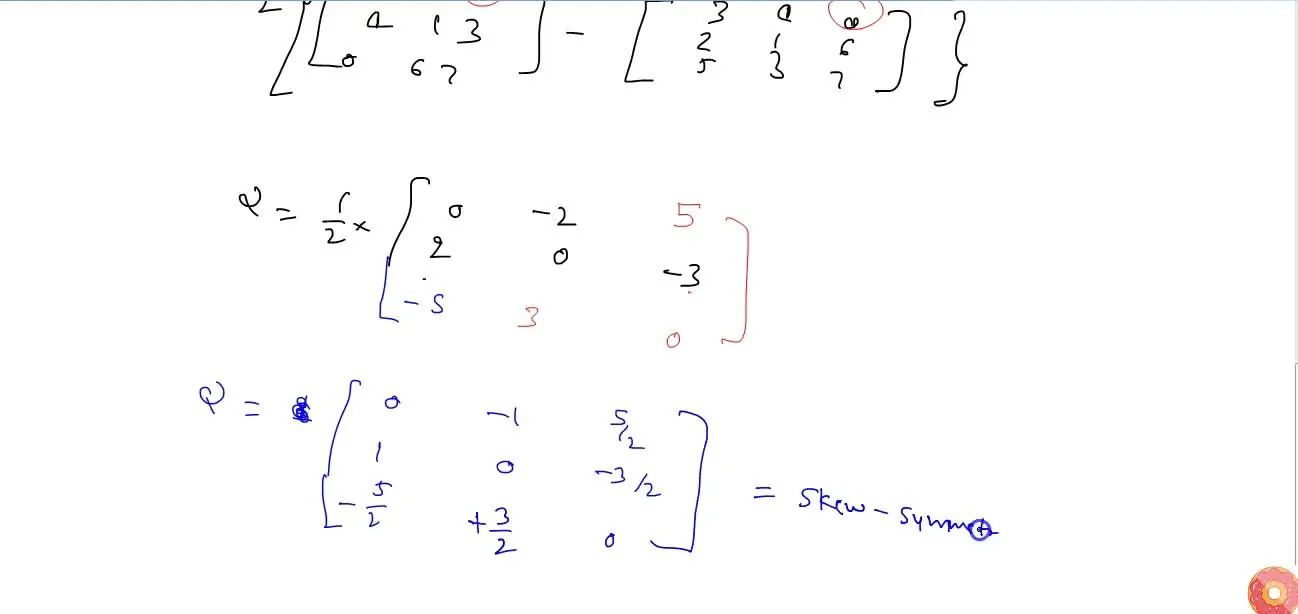 4 1 3 ] - [ 3 4 0
0 6 7 2 1 6
5 3 7 ] }
Q = 1/2 × [ 0 -2 5
2 0 -3
-5 3 0 ]
Q = [ 0 -1 5/2
1 0 -3/2
-5/2 +3/2 0 ] = Skew-symmet